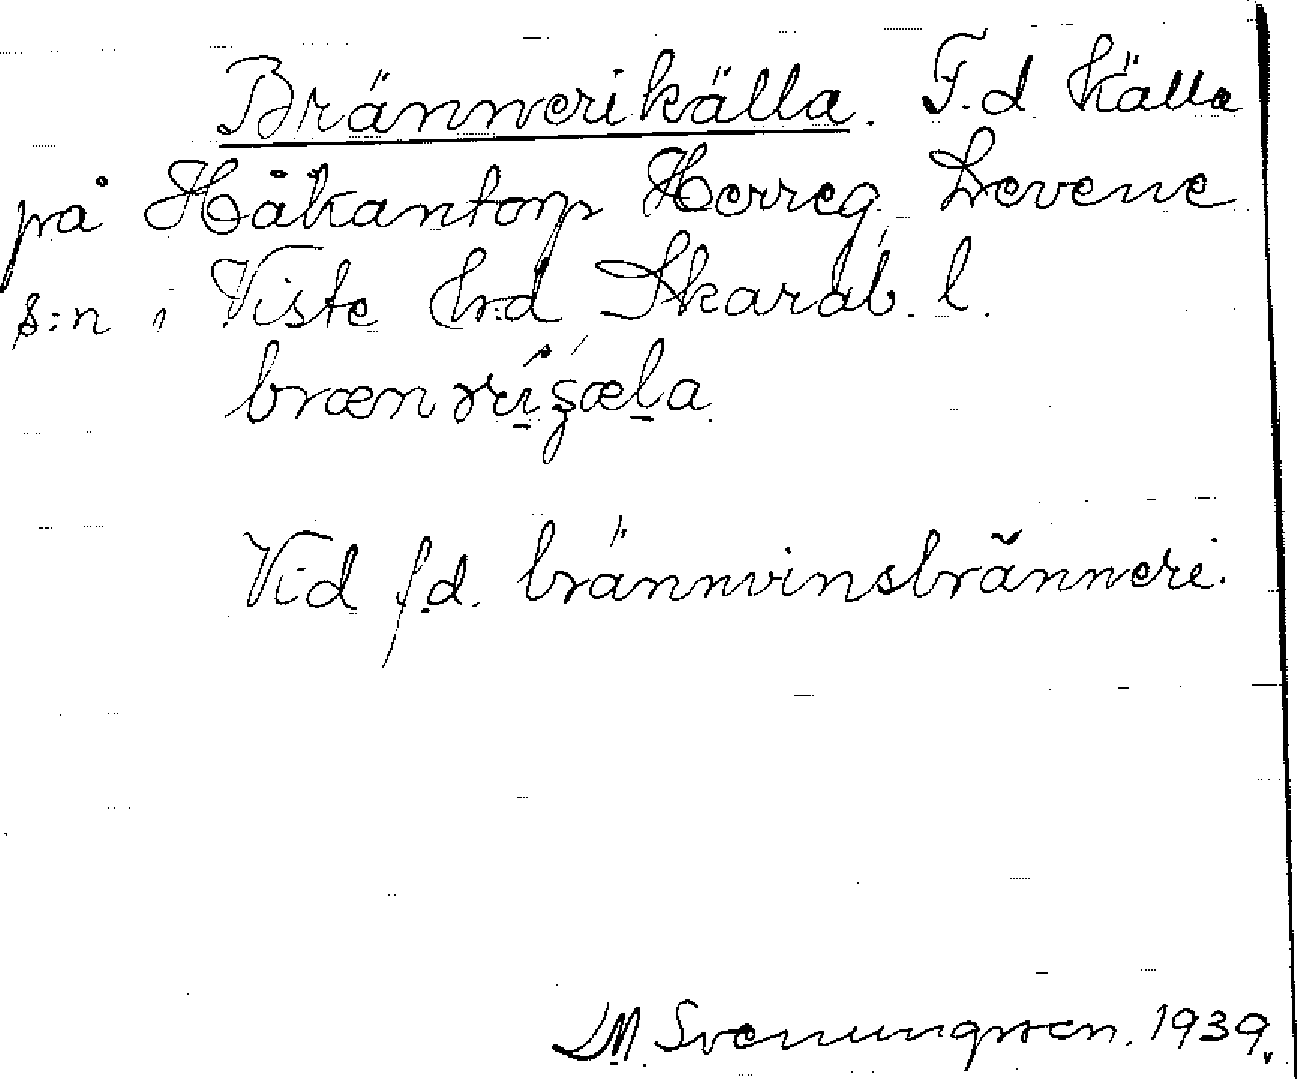 Brännerikälla. F.d Källa
på Håkantorp Herreg. Levene
s:n i Viste hrd Skarab. l.
brænríʂæla
Vid f.d. brännvinsbränneri.
LM. Svenungsson. 1939.